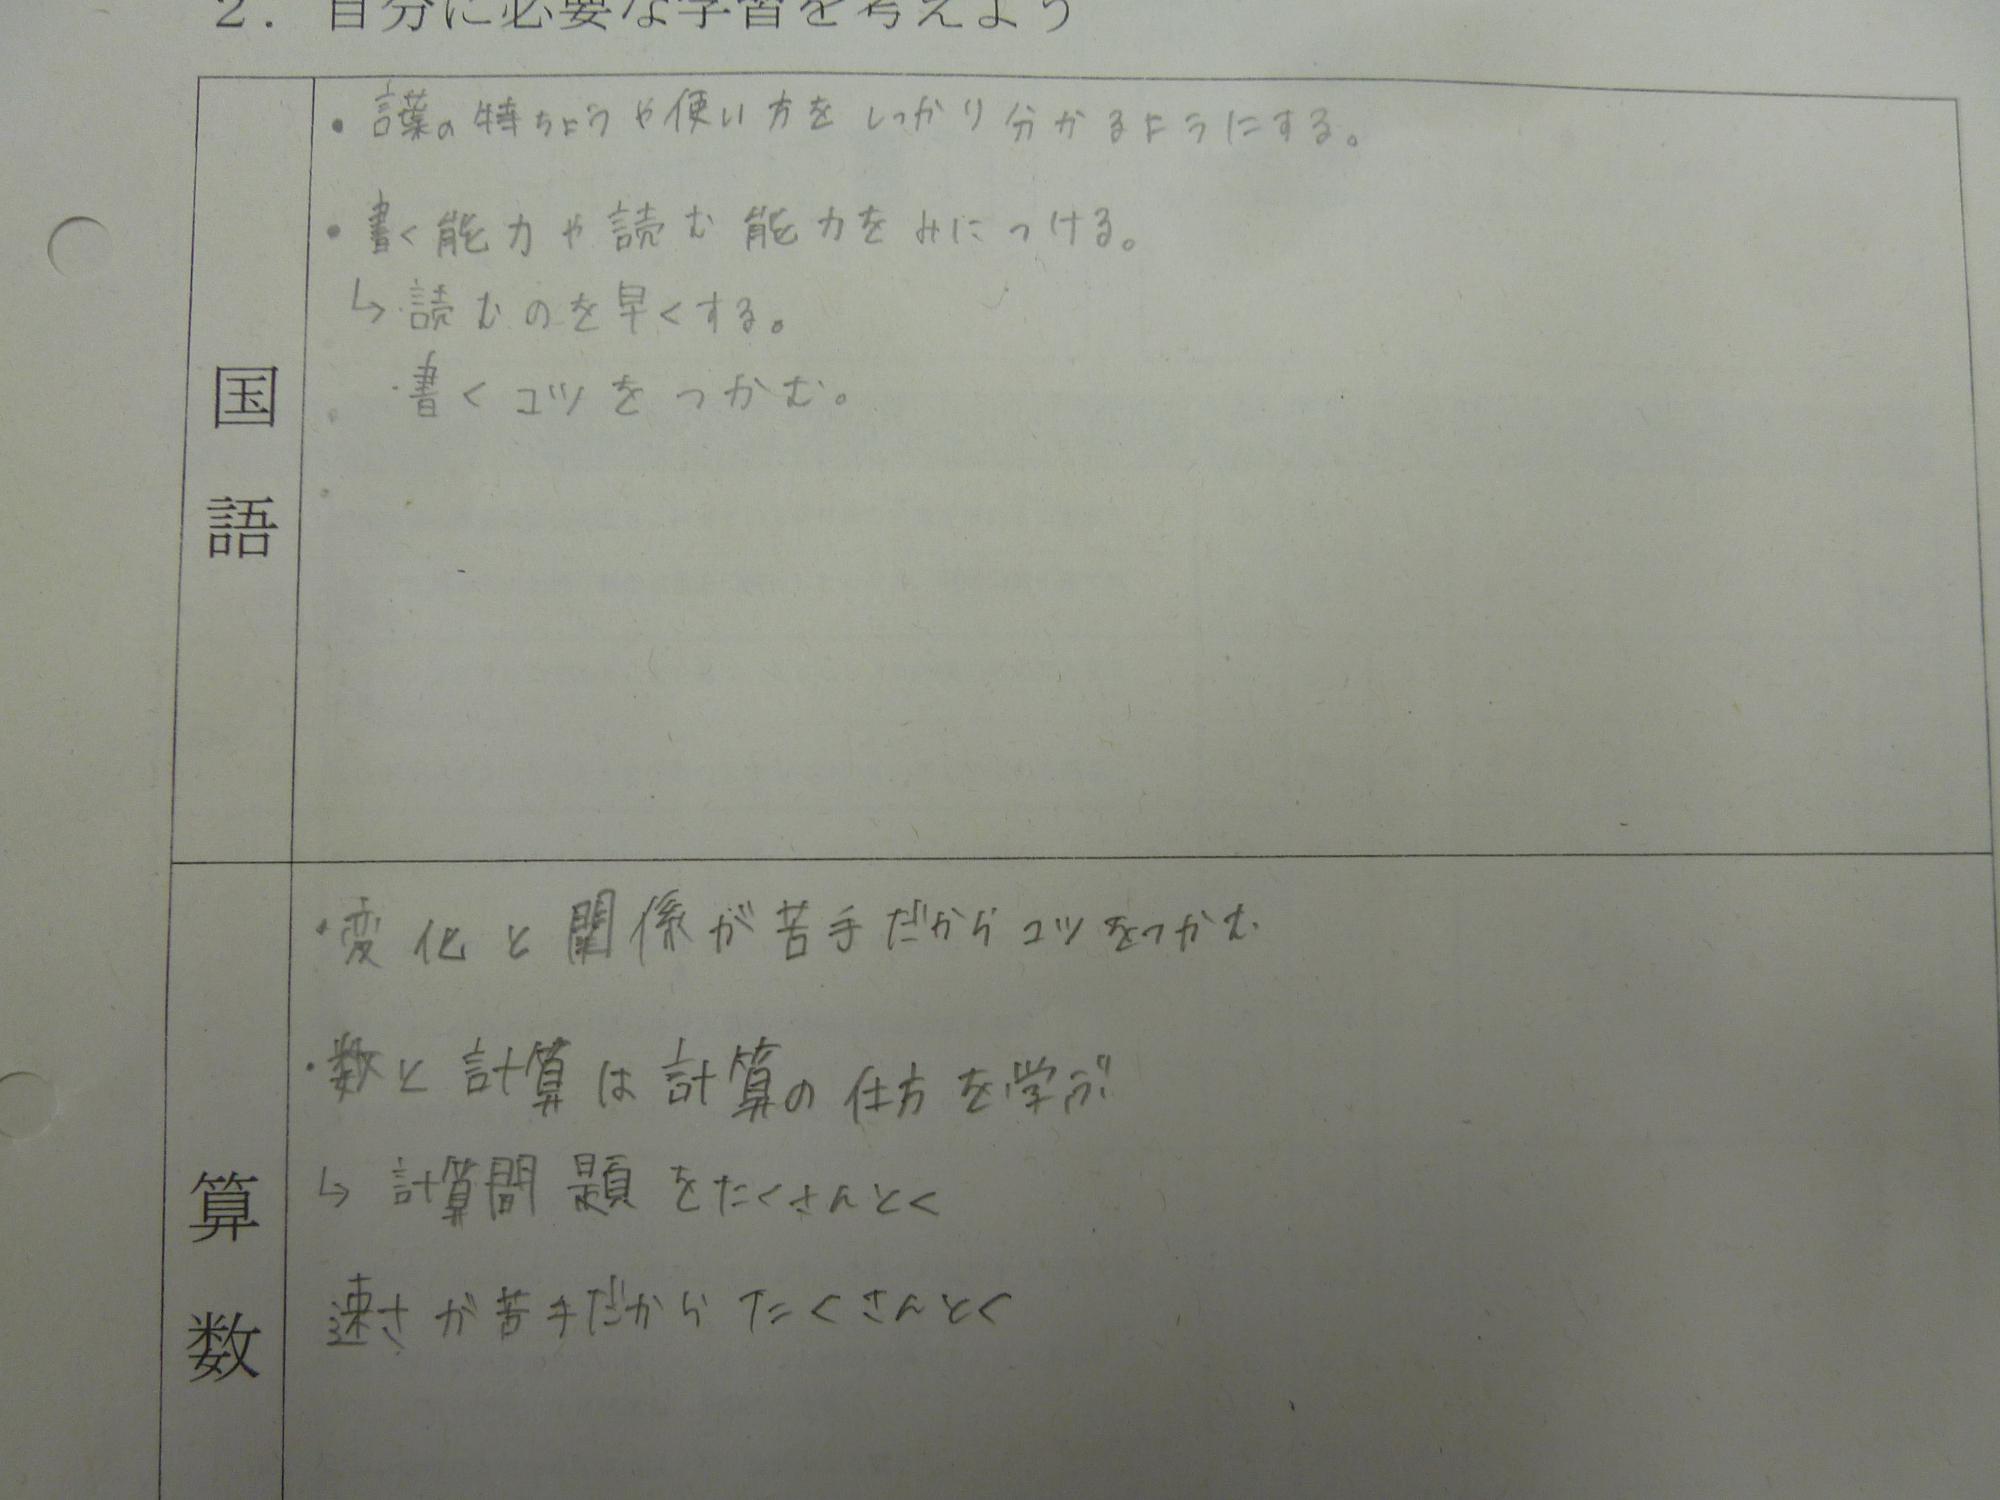 2．自分に必要な学習を考えよう
国語
・言葉の特ちょうや使い方をしっかり分かるようにする。
・書く能力や読む能力をみにつける。
↳・読むのを早くする。
・書くコツをつかむ。
算数
・変化と関係が苦手だからコツをつかむ
・数と計算は計算の仕方を学ぶ
↳ 計算問題をたくさんとく
速さが苦手だからたくさんとく